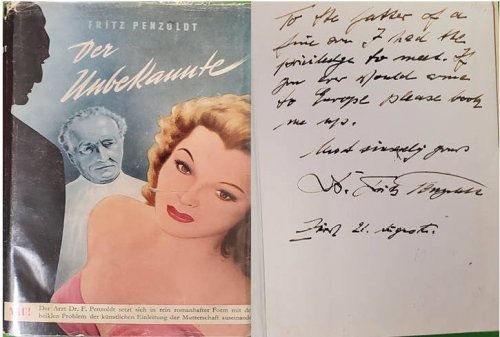 FRITZ PENZOLDT
Der
Unbekannte
NEU! Der Arzt Dr. F. Penzoldt setzt sich in rein romanhafter Form mit de
heiklen Problem der künstlichen Einleitung der Mutterschaft auseinande
To the father of a
fine son, I had the
priviledge to meet. If
you ever would come
to Europe please look
me up.
Most sincerely yours
Dr. Fritz Penzoldt
21. August